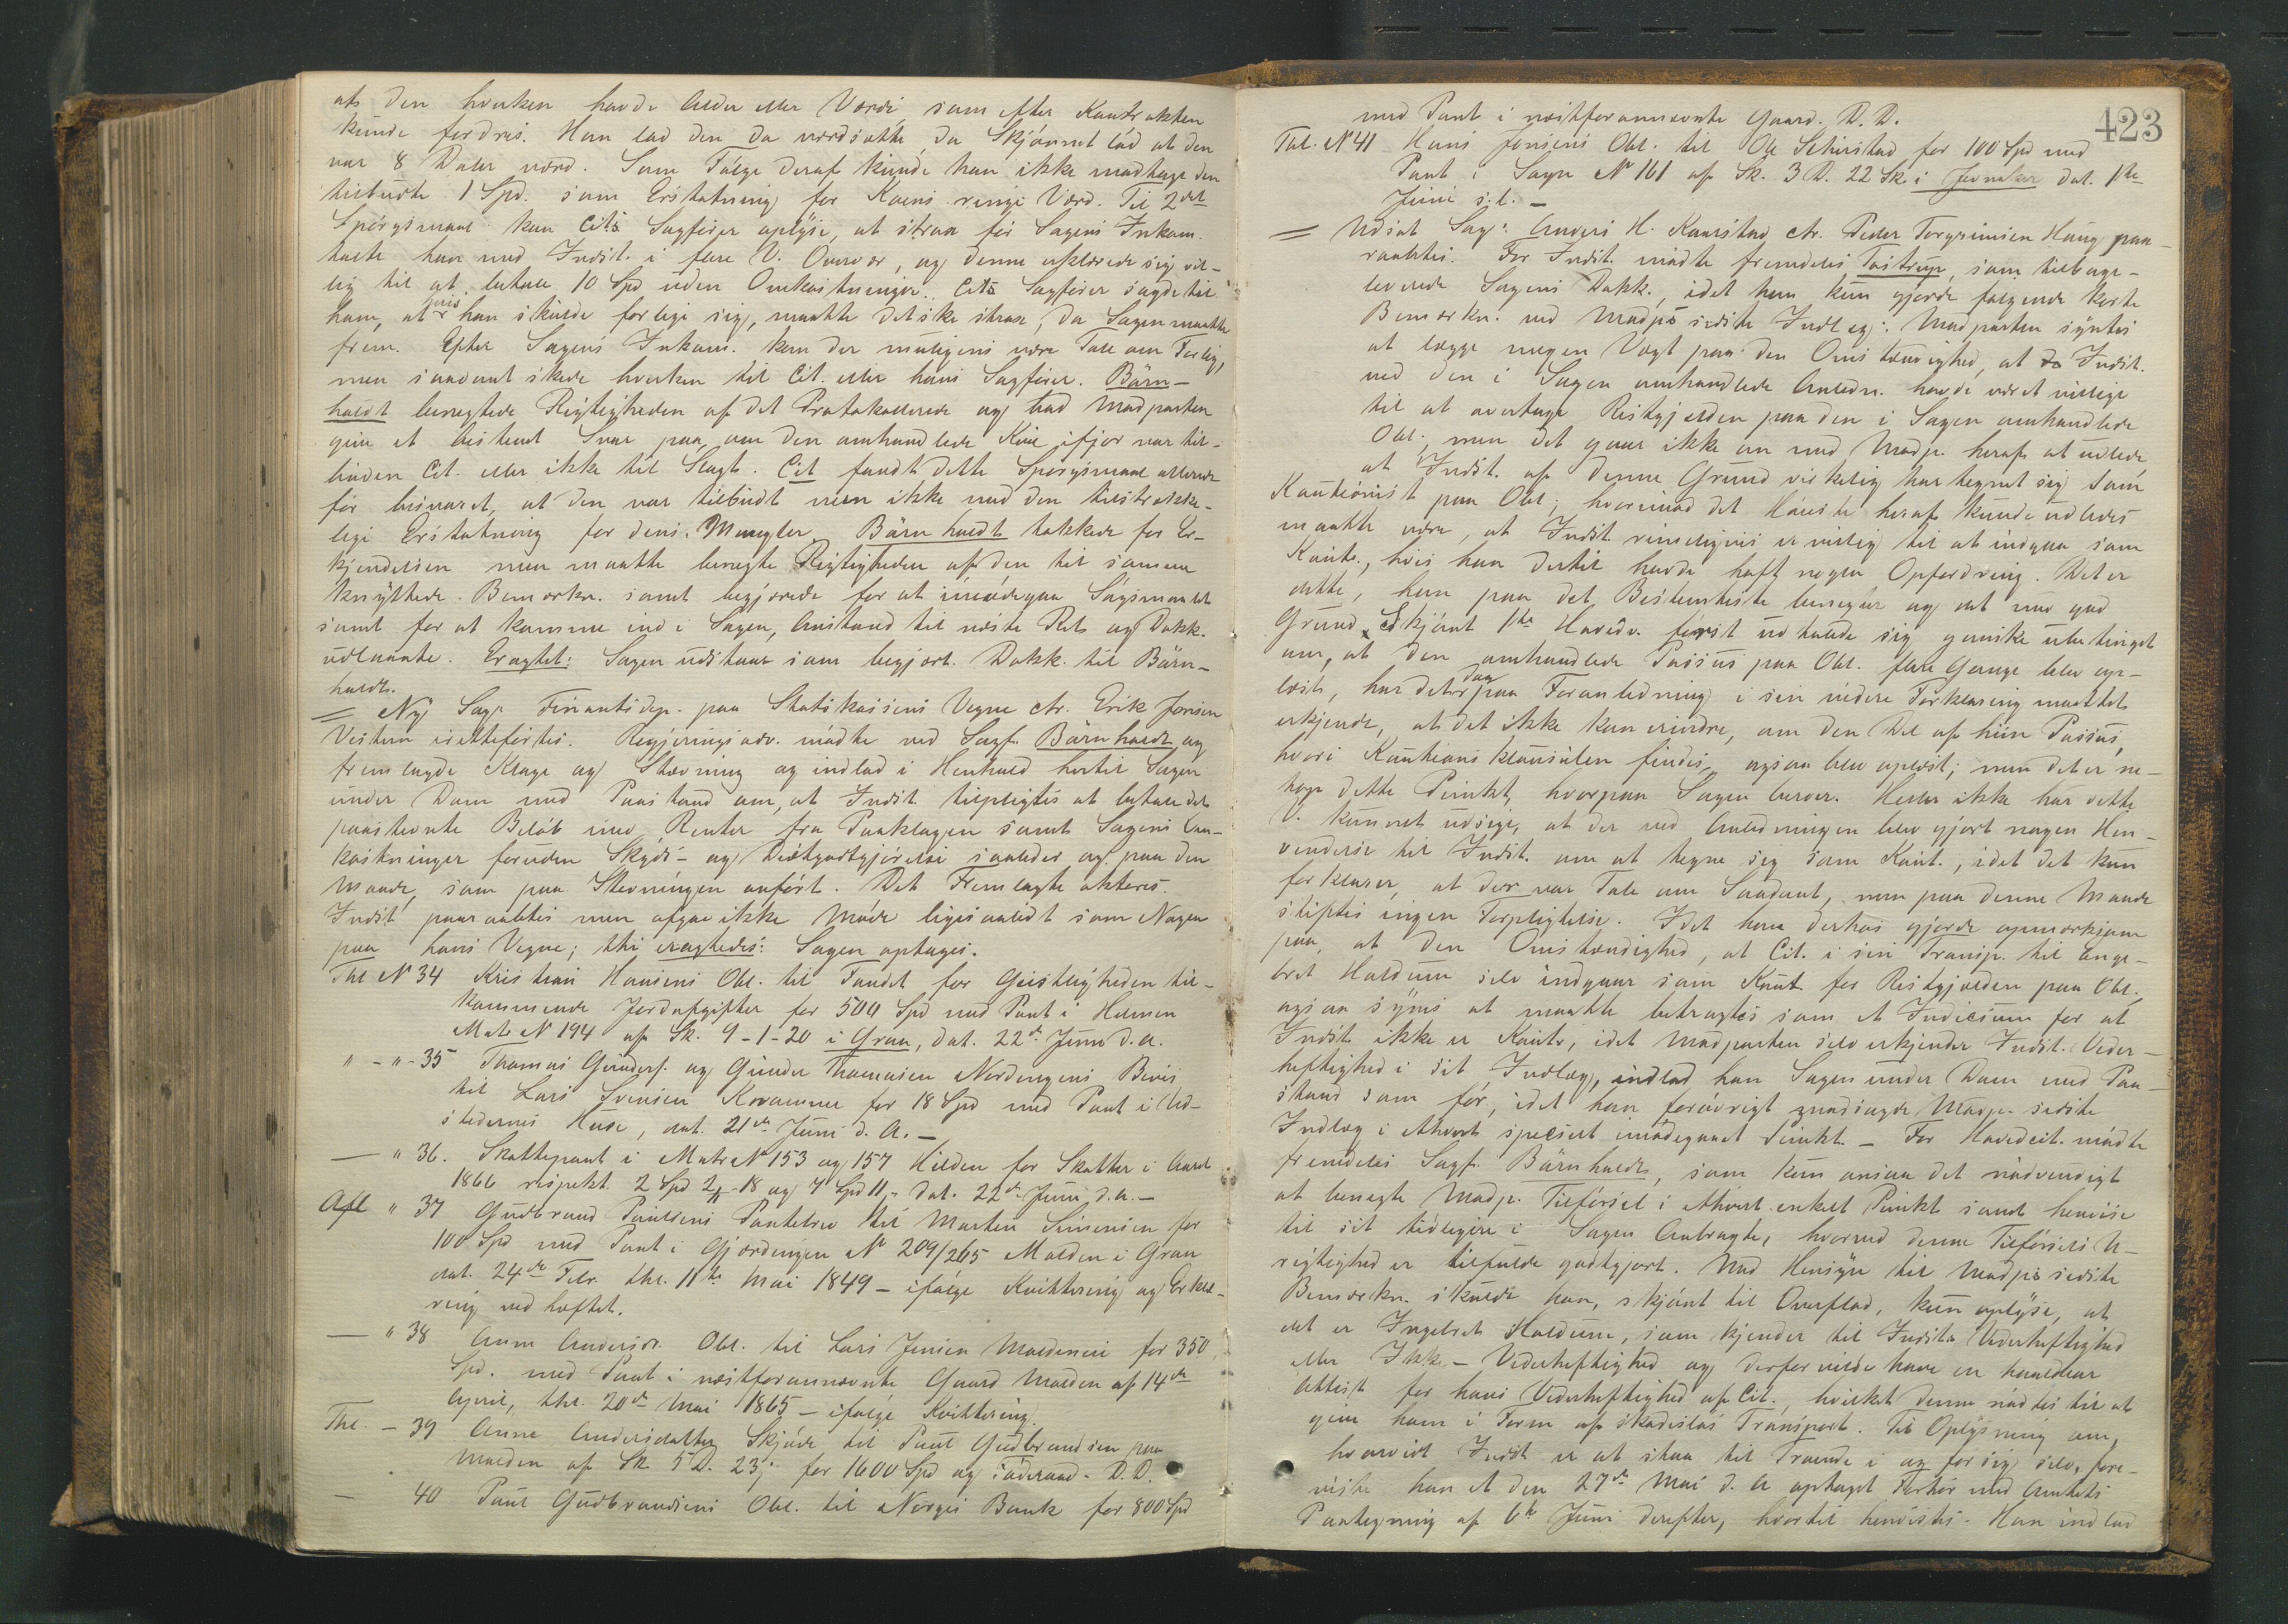 at den hverken havde Alder eller Værdi, som efter Kontrakten
kunde fordres. Han lod den da værdsætte, da Skjønnet lød at den
var 8 Daler værd. Som Følge deraf kunde han ikke modtage den
tilbudte 1 Spd. som Erstatning for Koens ringe Værd. Til 2det
Spørgsmaal kan Cits Sagfører oplyse, at strax før Sagens Inkam.
talte han med Indst. i flere V. Overvær, og denne erklærede sig vil-
lig til at betale 10 Spd uden Omkostninger. Cits Sagfører sagde til
ham, at hvis han skulde forlige sig, maatte det ske strax, da Sagen maatte
frem. Efter Sagens Inkam. kan der muligens være Tale om Forlig,
men saadant skede hverken til Cit. eller hans Sagfører. Bärn-
holdt benegtede Rigtigheden af det Protokollerede og bad Modparten
give et bestemt Svar paa, om den omhandlede Ko ifjor var til-
buden Cit. eller ikke til Slagt. Cit fandt dette Spørgsmaal allerede
før besvaret, at den var tilbudt men ikke med den tilstrække-
lige Erstatning for dens Mangler. Bärnholdt takkede for Er-
kjendelsen men maatte benegte Rigtigheden af den til samme
knyttede Bemærkn. samt begjærede for at imødegaa Søgsmaalet
samt for at komme ind i Sagen, Anstand til næste Ret og Dokk.
udlaante. Eragtet: Sagen udstaar som begjært. Dokk. til Bärn-
holdt.
= Ny Sag: Finantsdep. paa Statskassens Vegne ctr. Erik Jonsen
Vestern iretteførtes. Regjeringsadv. mødte ved Sagf. Bärnholdt og
fremlagde Klage og Stævning og indlod i Henhold hertil Sagen
under Dom med Paastand om, at Indst. tilpligtes at betale det
paastevnte Beløb med Renter fra Paaklagen samt Sagens Om-
kostninger foruden Skyds- og Diætgodtgjørelse saaledes og paa den
Maade, som paa Stevningen anført. Det Fremlagte akteres.
Indst. paaraabtes men afgav ikke Møde ligesaalidt som Nogen
paa hans Vegne; thi eragtedes: Sagen optages.
Thl N 34 Kristian Hansens Obl. til Fondet for Geistligheden til-
kommende Jordafgifter for 500 Spd med Pant i Helmen
Mat. N 194 af Sk. 9-1-20 i Gran, dat. 22de Juni d.a.
" - " - 35 Thomas Gunders. og Gunder Thomasen Nordengens Bevis
til Lars Svensen for 18 Spd med Pant i Ud-
stedernes Huse, dat. 21de Juni d. A. -
— " 36. Skattepant i Matr. N 153 og 157 Hilden for Skatter i Aaret
1866 respekt. 2 Spd 2-18 og 7 Spd 11,- dat. 22de Juni d.a. -
Afl " 37 Gudbrand Paulsens Pantebrev til Morten Simensen for
100 Spd med Pant i Gjordengen N 209/265 Molden i Gran
dat. 24de Febr. thl. 11te Mai 1849 - ifølge Kvittering og Erklæ-
ring vedhæftet.
— " 38 Anne Andersdr. Obl. til Lars Jensen Moldeneie for 350
Spd. med Pant i næstforannævnte Gaard Molden af 14de
April, thl. 20de Mai 1865 - ifølge Kvittering.
Thl. - 39 Anne Andersdatter Skjøde til Paul Gudbrandsen paa
Molden af Sk 5 D. 23; for 1600 Spd og Føderaad. D.D.
- 40 Paul Gudbrandsens Obl. til Norges Bank for 800 Spd
423
med Pant i næstforannævnte Gaard. D.D.
Thl. N 41 Hans Jonsens Obl. til Ole for 100 Spd med
Pant i Sagn N 161 af Sk. 3 D. 22 Sk. i Jevnaker dat. 1ste
Juni s.l. -
= Udsat Sag: Anders H. Kaarstad ctr. Peder Torgrimsen Haug paa-
raabtes. For Indst. mødte fremdeles Tostrup, som tilbage-
leverede Sagens Dokk., idet han kun gjorde følgende korte
Bemærkn. ved Modps sidste Indlæg: Modparten syntes
at lægge nogen Vægt paa den Omstændighed, at Indst.
ved den i Sagen omhandlede Anledn. havde været villige
til at overtage Restgjælden paa den i Sagen omhandlede
Obl., men det gaar ikke an med Modp. heraf at udlede,
at Indst. af denne Grund virkelig har tegnet sig som
Kautionist paa Obl.; hvorimod det Høieste heraf kunde udledes
maatte være, at Indst. rimeligvis er villig til at indgaa som
Kaut., hvis han dertil havde haft nogen Opfordring. Det er
dette, han paa det Bestemteste benegter og det med god
Grund. Skjønt 1ste Hovedv. først udtalte sig ganske ubetinget
om, at den omhandlede Passus paa Obl. flere Gange blev op-
læst, har det dog paa Foranledning i sin videre Forklaring maattet
erkjende, at det ikke kan erindre, om den Del af hiin Passus,
hvori Kautionsklausulen findes, ogsaa blev oplæst; men det er ne-
top dette Punkt, hvorpaa Sagen beroer. Heller ikke har dette
V. kunnet udsige, at der ved Anledningen blev gjort nogen Hen-
vendelse til Indst. om at tegne sig som Kaut., idet det kun
forklarer, at der var Tale om Saadant, men paa denne Maade
stiftes ingen Forpligtelse. Idet han derhos gjorde opmærksom
paa, at den Omstændighed, at Cit. i sin Transp. til Inge-
bret Holdum selv indgaar som Kaut. for Restgjælden paa Obl.,
ogsaa synes at maatte betragtes som et Indicium for at
Indst. ikke er Kaut., idet Modparten selv erkjender Indst. Veder-
heftighed i sit Indlæg, indlod han Sagen under Dom med Paa-
stand som før, idet han forøvrigt modsagde Modp. sidste
Indlæg i ethvert specielt imødegaaet Punkt. - For Hovedcit. mødte
fremdeles Sagf. Bärnholdt, som kun ansaa det nødvendigt
at benegte Modp. Tilførsel i ethvert enkelt Punkt samt henvise
til sit tidligere i Sagen Anbragte, hvorved denne Tilførsels U-
rigtighed er tilfulde godtgjort. Med Hensyn til Modps sidste
Bemærkn. skulde han, skjønt til Overflod, kun oplyse, at
det er Ingebret Holdum, som kjender til Indsts Vederheftighed
eller Ikke-Vederheftighed og derfor vilde have en
Attest for hans Vederheftighed af Cit., hvilket denne nødtes til at
give ham i Form af skadesløs Transport. Til Oplysning om,
hvorvidt Indst. er at staa til Troende i og for sig selv, fore-
viste han et den 27de Mai d. A optaget Forhør med Amtets
Paategning af 6te Juni derefter, hvortil henvistes. Han indlod